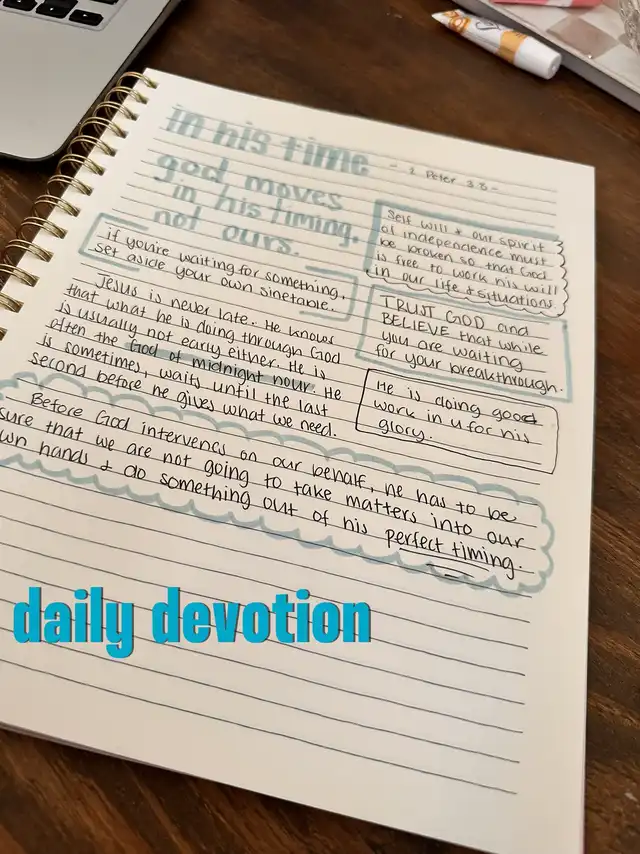 in his time
- 2 Peter 3:8 -
god moves
in his timing,
not ours.
Self will + our spirit
of independence must
be broken so that God
is free to work his will
in our life + situations
if you're waiting for something,
set aside your own timetable.
TRUST GOD and
BELIEVE that while
you are waiting
for your breakthrough.
Jesus is never late. He knows
that what he is doing through God
is usually not early either. He is
often the God of midnight hour. He
is sometimes, waits until the last
second before he gives what we need.
He is doing good
work in u for his
glory.
Before God intervenes on our behalf, he has to be
sure that we are not going to take matters into our
own hands + do something out of his perfect timing.
daily devotion